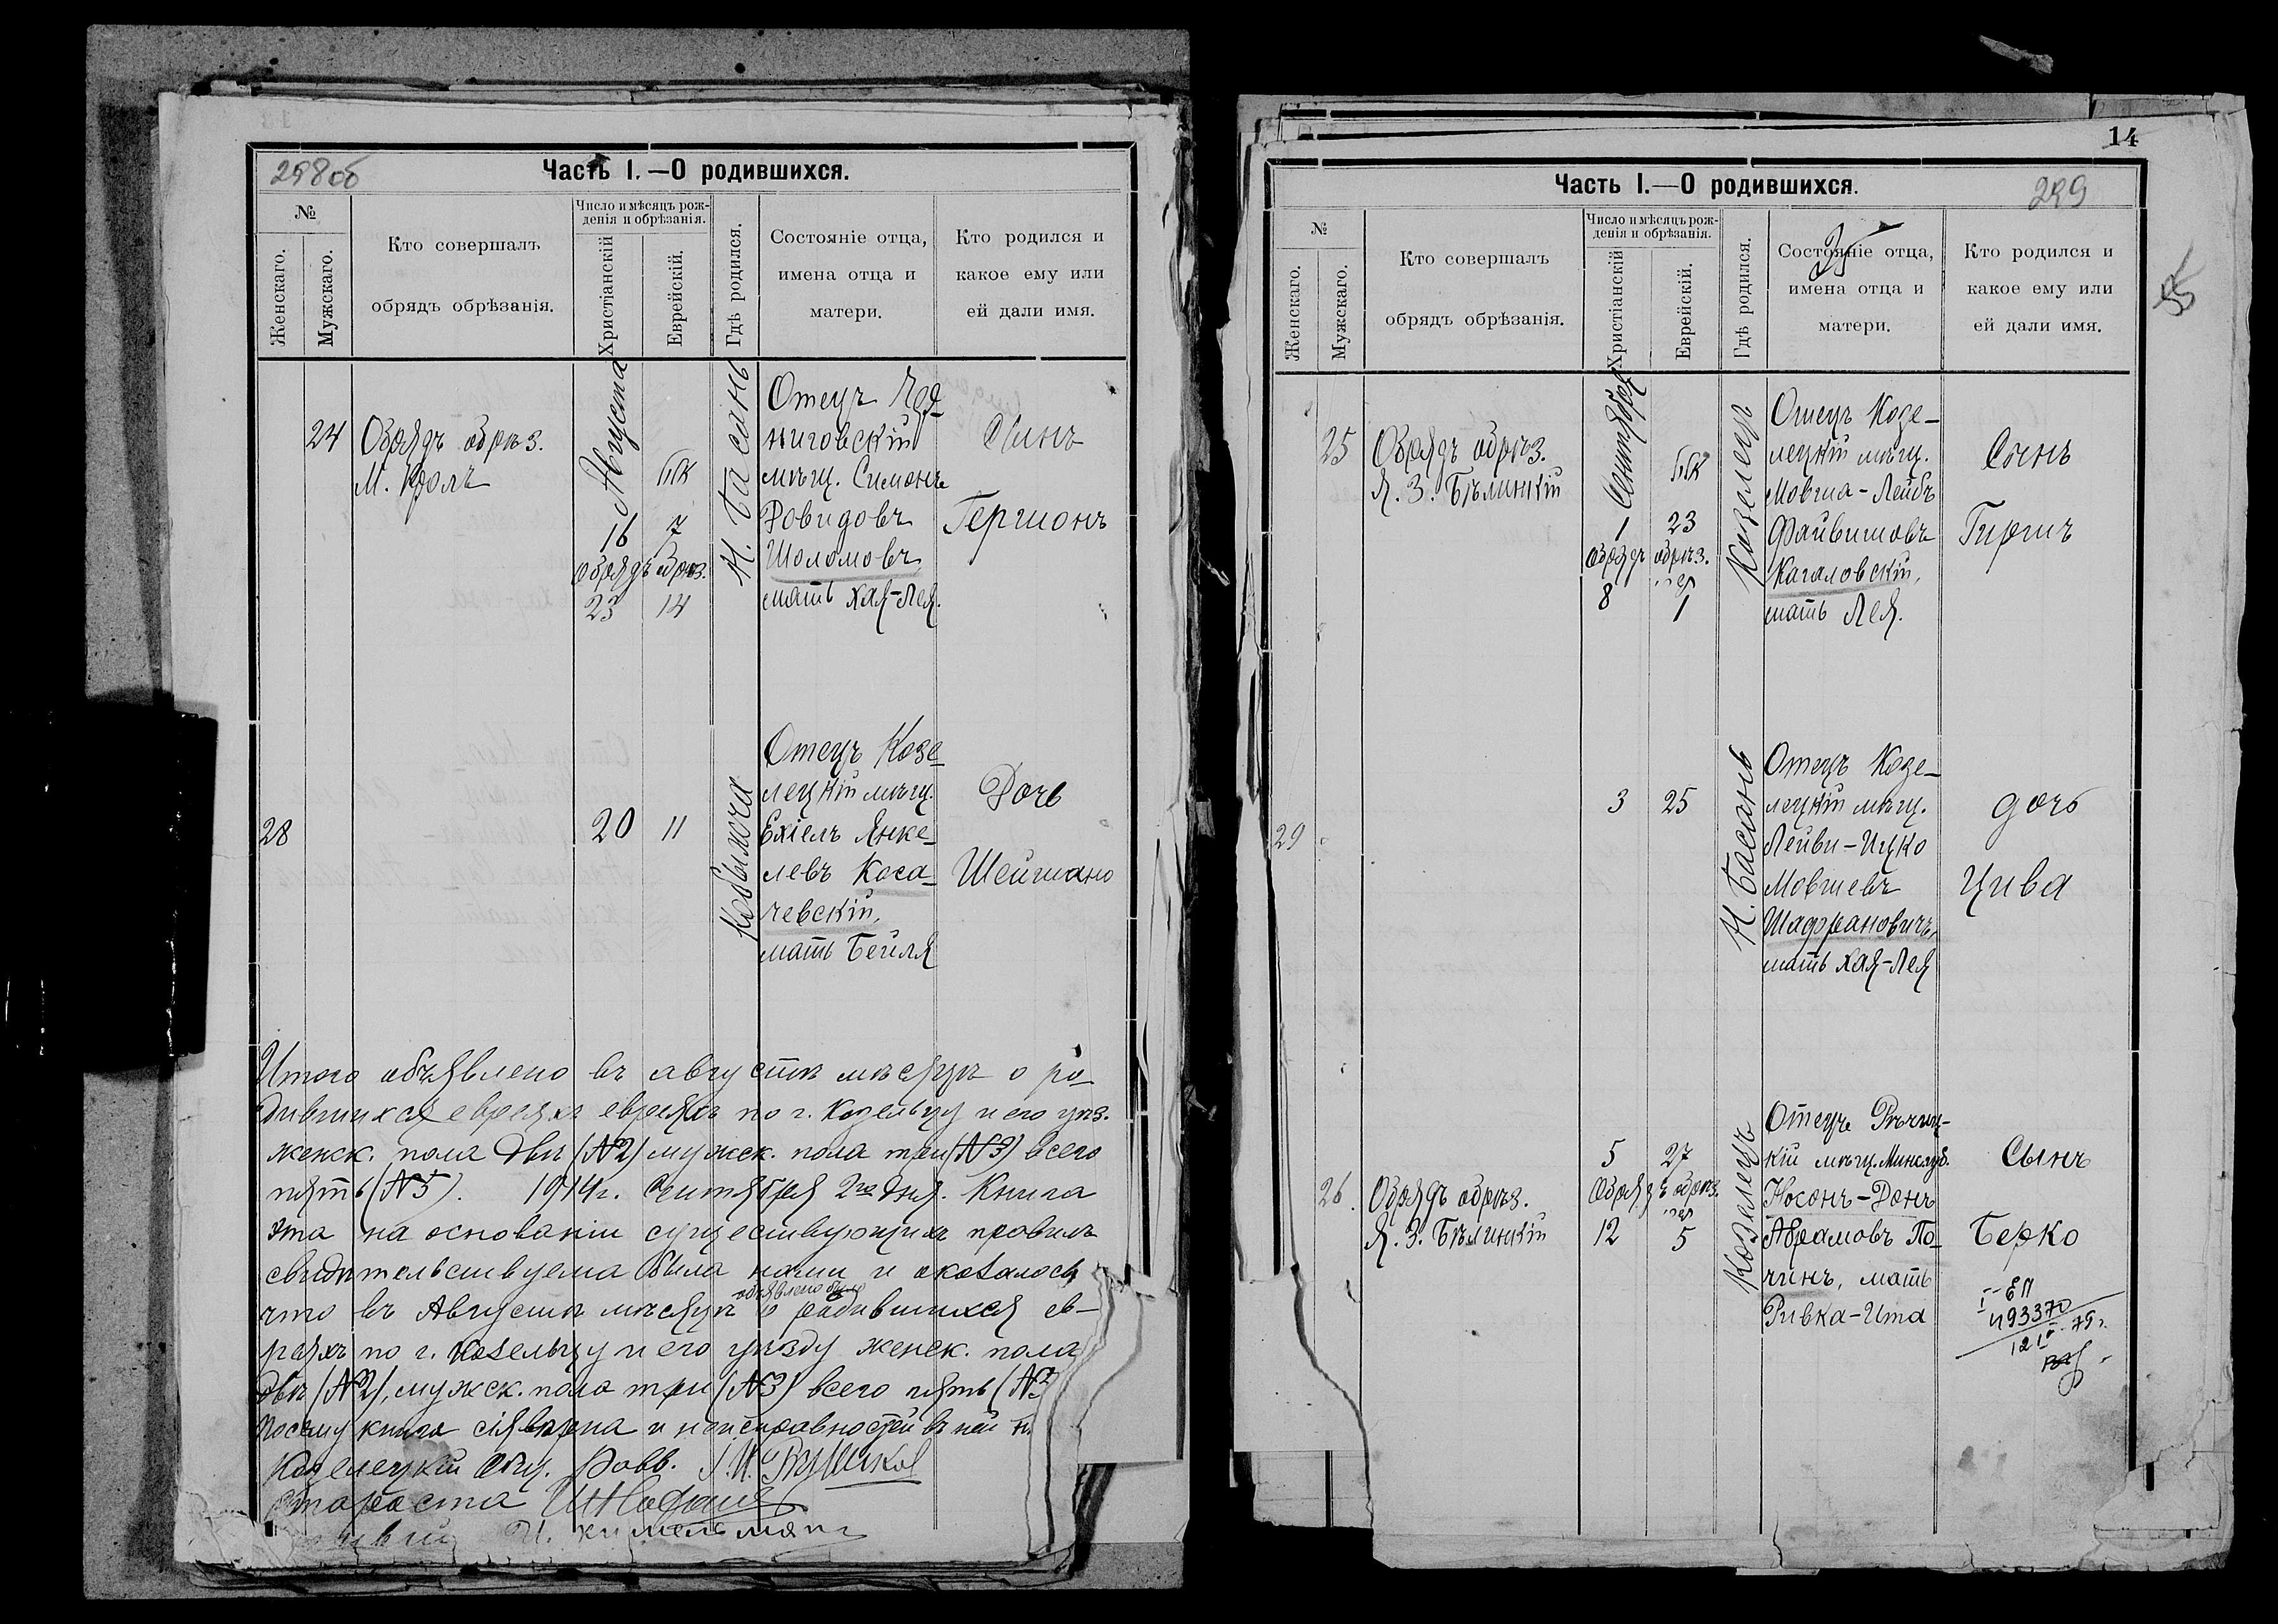 298об
Часть I.—О родившихся.
№
Женскаго.
Мужскаго.
Кто совершалъ
обрядъ обрѣзанія.
Число и мѣсяцъ рож-
денія и обрѣзанія.
Христіанскій
Еврейскій.
Гдѣ родился.
Состояніе отца,
имена отца и
матери.
Кто родился и
какое ему или
ей дали имя.
24
Обрядъ обрѣз.
М. Кролъ
Августа
16 7
Обрядъ обрѣз.
23 14
Н. Басань
Отецъ Чер-
ниговскій
мѣщ. Симонъ
Довидовъ
Шоломовъ,
мать Хая-Лея.
Сынъ
Гершонъ
28
20 11
Кобыжча
Отецъ Козе-
лецкій мѣщ.
Ехіелъ Янке-
левъ Коса-
чевскій,
мать Бейля
Дочь
Шейндля
Итого объявлено въ августѣ мѣсяцѣ о ро-
дившихся евреяхъ евреяхъ по г. Козельцу и его уѣз.
женск. пола двѣ (№2) мужск. пола три (№3) всего
пять (№5). 1914г. Сентября 2го дня. Книга
эта на основаніи существующихъ правилъ
свидѣтельствуема была нами и оказалось
объявлено было
что въ Августѣ мѣсяцѣ о родившихся ев-
реяхъ по г. Козельцу и его уѣзду женск. пола
двѣ (№2), мужск. пола три (№3) всего пять (№
посему книга сія вѣрна и неисправностей въ ней н
Козелецкій Общ. Равв.
Староста
И. Химельманъ
14
Часть I.—О родившихся.
299
№
Женскаго.
Мужскаго.
Кто совершалъ
обрядъ обрѣзанія.
Число и мѣсяцъ рож-
денія и обрѣзанія.
Христіанскій
Еврейскій.
Гдѣ родился.
Состояніе отца,
имена отца и
матери.
Кто родился и
какое ему или
ей дали имя.
25
Обрядъ обрѣз.
Я. З. Бѣлинкій
Сентября
1 23
Обрядъ обрѣз.
8 1
Козелецъ
Отецъ Козе-
лецкій мѣщ.
Мовша-Лейбъ
Файвишовъ
Кагаловскій,
мать Лея.
Сынъ
Гиршъ
29
3 25
Н. Басань
Отецъ Козе-
лецкій мѣщ.
Лейви-Ицко
Мовшевъ
Шафрановичъ,
мать Хая-Лея
дочь
Цива
26.
Обрядъ обрѣз.
Я. З. Бѣлинкій
5 27
Обрядъ обрѣз.
12 5
Козелецъ
Отецъ Рѣчиц-
кій мѣщ. Минск.губ.
Носонъ-Донъ
Абрамовъ По-
чинъ, мать
Ривка-Ита
Сынъ
Берко
I--ЕП
493370